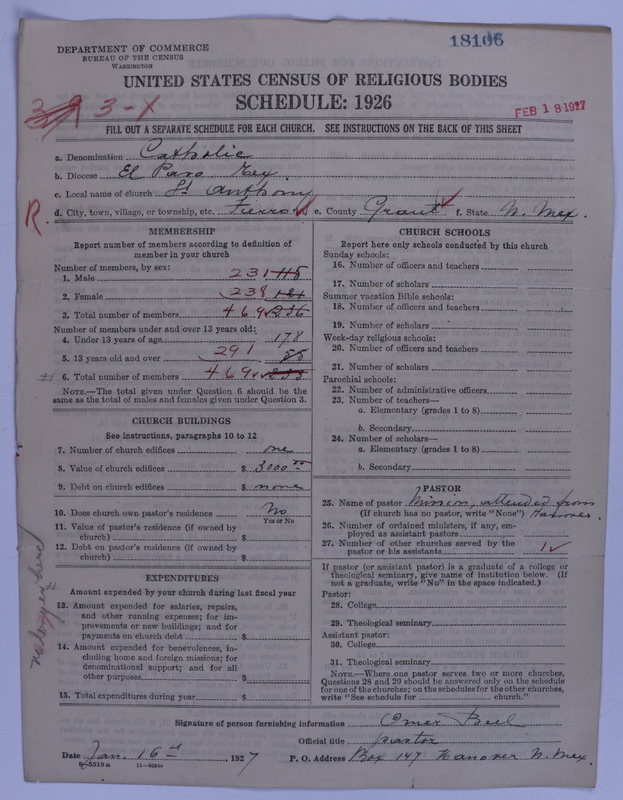 18106
DEPARTMENT OF COMMERCE
BUREAU OF THE CENSUS
WASHINGTON
UNITED STATES CENSUS OF RELIGIOUS BODIES
SCHEDULE: 1926
3-X
FEB 18 1927
FILL OUT A SEPARATE SCHEDULE FOR EACH CHURCH. SEE INSTRUCTIONS ON THE BACK OF THIS SHEET
a. Denomination Catholic
b. Diocese El Paso Tex.
c. Local name of church St Anthony
R. d. City, town, village, or township, etc. Fierro e. County Grant f. State N. Mex.
MEMBERSHIP
Report number of members according to definition of member in your church
Number of members, by sex:
1. Male 231 115
2. Female 238 121
3. Total number of members 469 236
Number of members under and over 13 years old:
4. Under 13 years of age 178
5. 13 years old and over 291
6. Total number of members 469
NOTE.—The total given under Question 6 should be the same as the total of males and females given under Question 3.
CHURCH BUILDINGS
See instructions, paragraphs 10 to 12
7. Number of church edifices one
8. Value of church edifices $ 3000.00
9. Debt on church edifices $ none
10. Does church own pastor's residence No
Yes or No
11. Value of pastor's residence (if owned by church) $
12. Debt on pastor's residence (if owned by church) $
EXPENDITURES
Amount expended by your church during last fiscal year
13. Amount expended for salaries, repairs, and other running expenses; for improvements or new buildings; and for payments on church debt $
14. Amount expended for benevolences, including home and foreign missions; for denominational support; and for all other purposes $
15. Total expenditures during year $
CHURCH SCHOOLS
Report here only schools conducted by this church
Sunday schools:
16. Number of officers and teachers
17. Number of scholars
Summer vacation Bible schools:
18. Number of officers and teachers
19. Number of scholars
Week-day religious schools:
20. Number of officers and teachers
21. Number of scholars
Parochial schools:
22. Number of administrative officers
23. Number of teachers—
a. Elementary (grades 1 to 8)
b. Secondary
24. Number of scholars—
a. Elementary (grades 1 to 8)
b. Secondary
PASTOR
25. Name of pastor Mission, attended from
(If church has no pastor, write "None") Hanover.
26. Number of ordained ministers, if any, employed as assistant pastors
27. Number of other churches served by the pastor or his assistants 1
If pastor (or assistant pastor) is a graduate of a college or theological seminary, give name of institution below. (If not a graduate, write "No" in the space indicated.)
Pastor:
28. College
29. Theological seminary
Assistant pastor:
30. College
31. Theological seminary
NOTE.—Where one pastor serves two or more churches, Questions 28 and 29 should be answered only on the schedule for one of the churches; on the schedules for the other churches, write "See schedule for church."
Signature of person furnishing information Omer
Official title pastor
Date Jan. 16th, 1927
P. O. Address Box 147 Hanover N. Mex.
8-5319a 11-9084